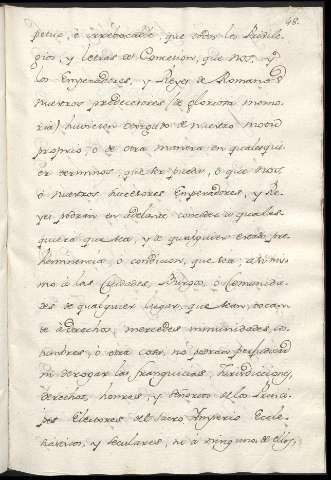 48.
petuo, è irrebocable, que todos los Pribile-
gios, y letras de Concesion, que Nos, y
los Emperadores, y Reyes de Romanos
nuestros predecesores (de gloriosa memo-
ria) huvieren otorgado de nuestro motu
proprio, o de otra manera en qualesqui-
er terminos, que ser pueda, o que Nos,
ò nuestros sucesores Emperadores, y Re-
yes podran en adelante conceder a quales
quiera que sea, y de qualquier estado, pre-
heminencia, o condicion, que sea, asi mis-
mo à las Ciudades, Burgos, o Comunida-
des de qualquier lugar, que sean, tocan-
te à derechos, mercedes, inmunidades, cos-
tumbres, ò otra cosa, no podran perjudicar
ni derogar las franquicias, Jurisdicciones,
derechos, honores, y señorios de los Princi-
pes Electores del Sacro Imperio Ecle-
siasticos, y seculares, ni à ninguno de ellos,